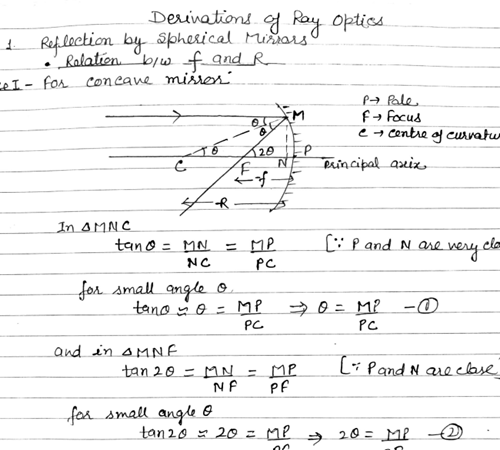 Derivations of Ray Optics
1. Reflection by Spherical Mirrors
• Relation b/w f and R
se I - For concave mirror
M
θ
θ
θ
2θ
C
F
N
P
Principal axis
-f
-R
P → Pole
F → Focus
C → centre of curvatur
In ΔMNC
tanθ = MN/NC = MP/PC [∵ P and N are very clo
for small angle θ
tanθ ≈ θ = MP/PC ⇒ θ = MP/PC - ①
and in ΔMNF
tan2θ = MN/NF = MP/PF [∵ P and N are close]
for small angle θ
tan2θ ≈ 2θ = MP ⇒ 2θ = MP - ②